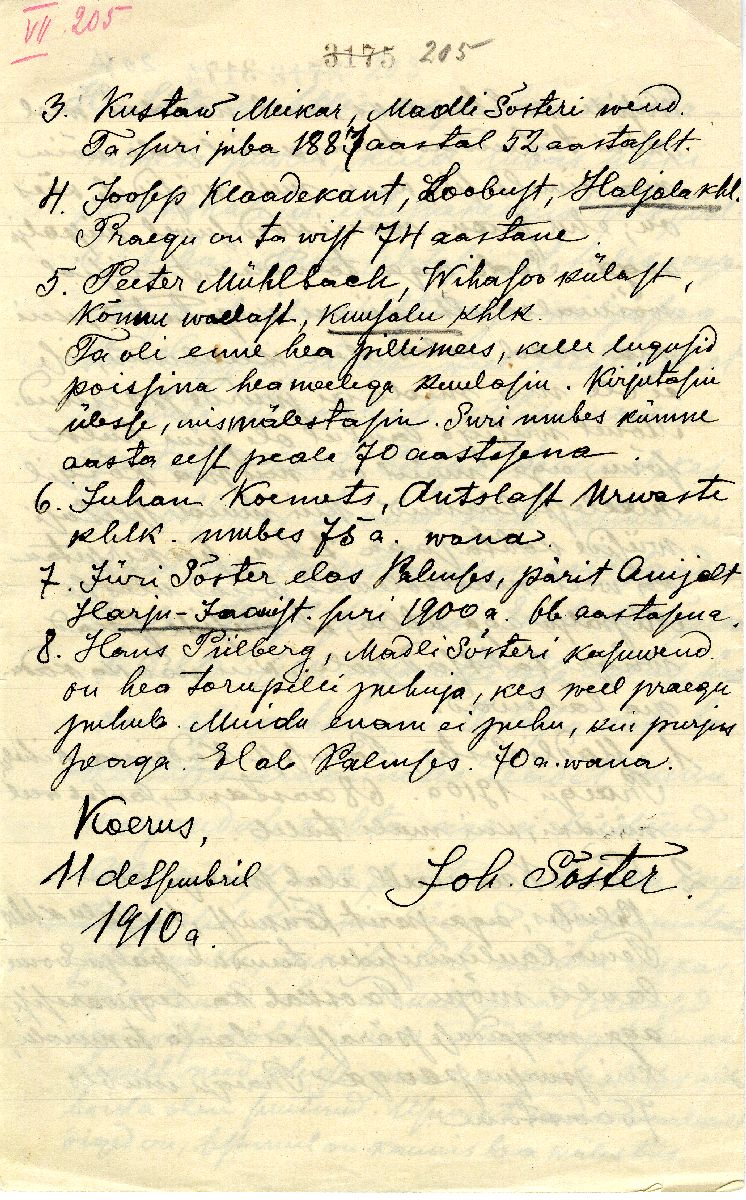 VII 205
3175 205
3. Kustaw Meikar, Madli Sösteri wend.
Ta suri juba 1887 aastal 52 aastaselt.
4. Joosep Klaadekant, Loobust, Haljala khl.
Praegu on ta wist 74 aastane.
5. Peeter Mühlbach, Wihasoo külast,
Kõnnu wallast, Kuusalu khlk.
Ta oli enne hea pillimees, kelle lugusid
poissina hea meelega kuulasin. Kirjutasin
ülesse, mis mälestasin. Suri umbes kümne
aasta eest peale 70 aastasena.
6. Juhan Koemets, Antslast Urwaste
khlk. umbes 75 a. wana.
7. Jüri Söster elas Palmses, pärit Anijalt
Harju-Jaanist. suri 1900 a. 66 aastasena.
8. Hans Piilberg, Madli Sösteri kasuwend
on hea torupilli puhuja, kes weel praegu
puhub. Muidu enam ei puhu, kui purjus
peaga. Elab Palmses. 70 a. wana.
Koerus,
11 detsembril
1910 a.
Joh. Söster.